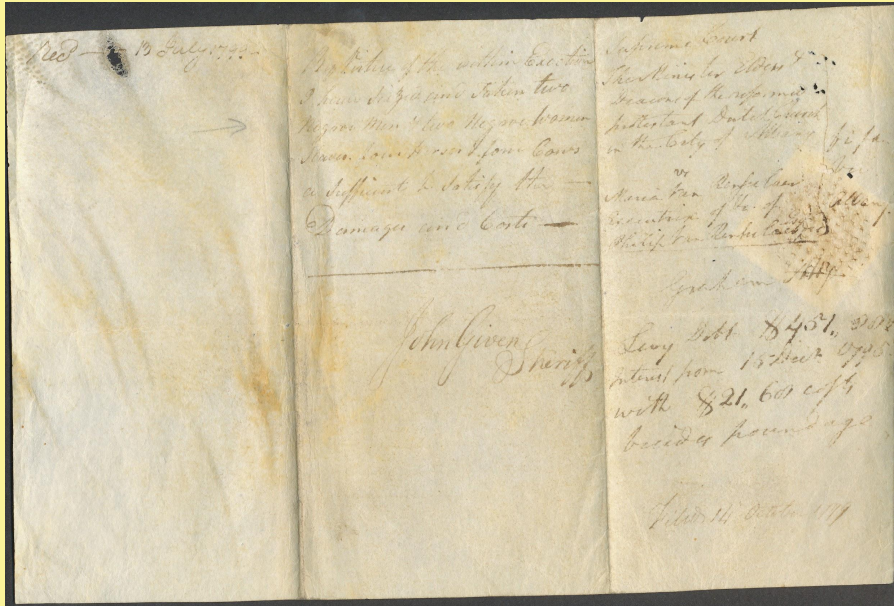 Recd 13 July 1799
By Virtue of the within Execution
I have Seized and taken two
Negroe Men & two Negroe Women
Slaves four Horses & four Cows
a Sufficient to Satisfy the
Damages and Costs
John Given
Sheriff
Supreme Court
The Minister Elders &
Deacons of the reformed
protestant Dutch Church
in the City of Albany
vs
Maria Van Renselaer
Executrix of &c of
Philip Van Renselaer
fi fa
Albany
Graham Atty
Levy Debt $451,,
Interest from 15 Decr
with $21,,60 costs
besides poundage
Filed 14 October 1799